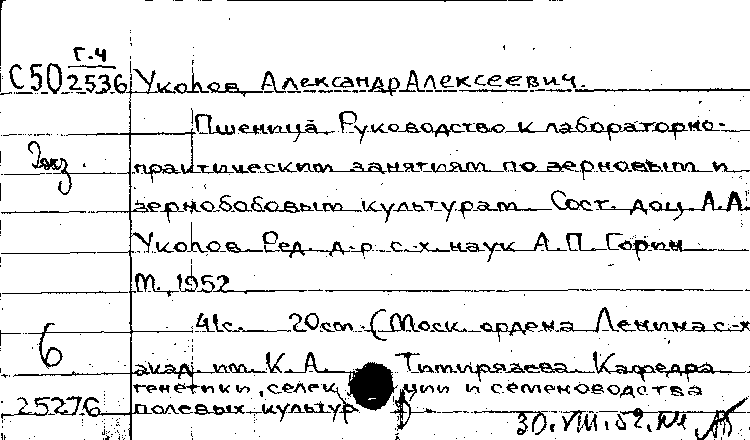 Г.Ч
С50 2536 Уколов, Александр Алексеевич.
Пшеница. Руководство к лабораторно-
Экз. практическим занятиям по зерновым и
зернобобовым культурам. Сост. доц. А.А.
Уколов. Ред. д-р с.-х. наук А.П. Горин
М., 1952
41с. 20см. (Моск. ордена Ленина с-х
6 акад. им. К. А. Тимирязева. Кафедра
генетики, селекции и семеноводства
25276 полевых культур).
30.VIII.52.